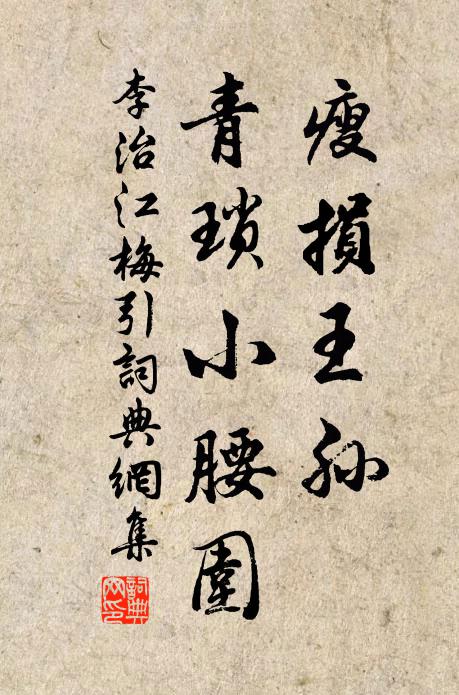 瘦損王孫
青瑣小腰圍
李治江梅引詞典網集
詞典
网印